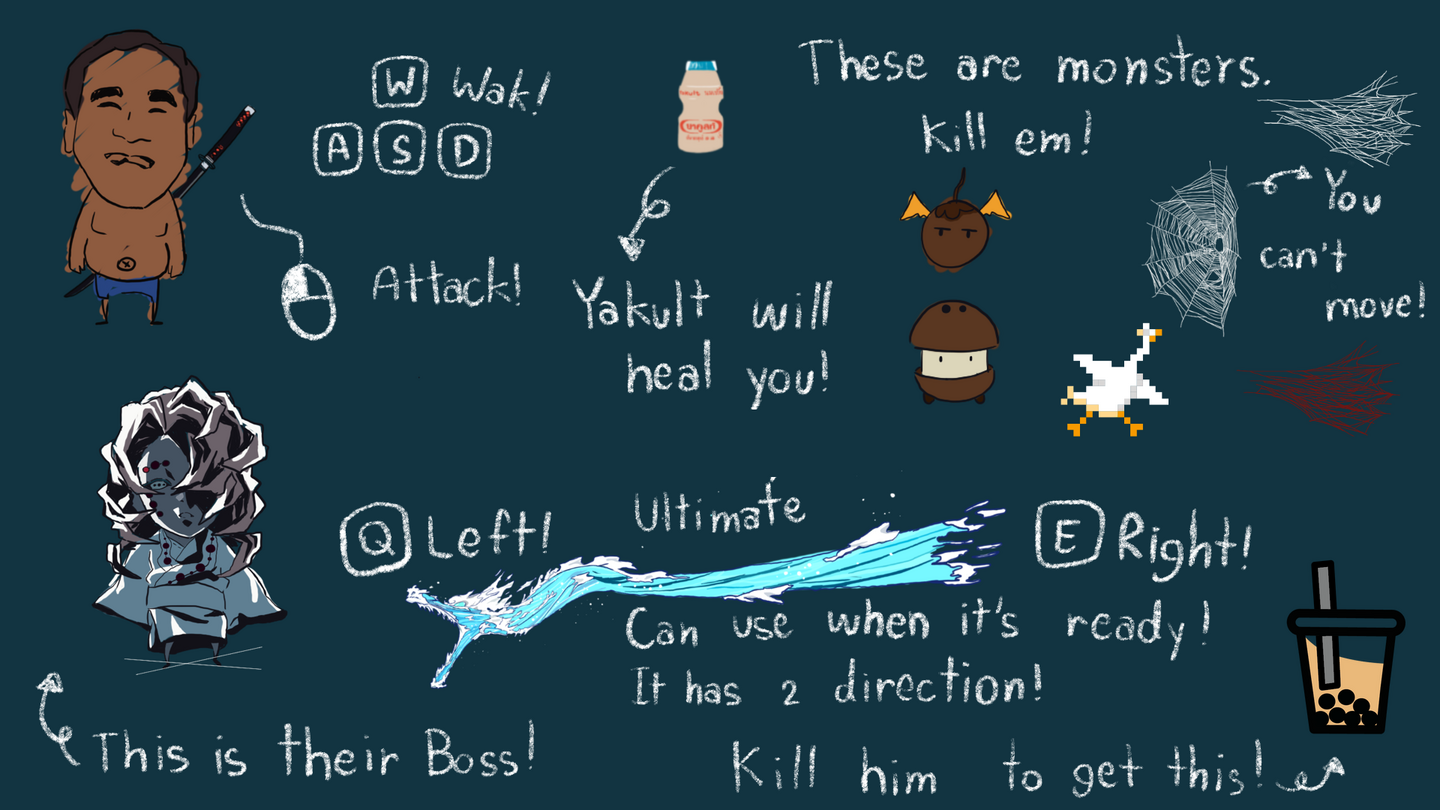 W Wak!
A S D
Attack!
Yakult will
heal you!
These are monsters.
Kill em!
You
can't
move!
Q Left!
Ultimate
E Right!
Can use when it's ready!
It has 2 direction!
This is their Boss!
Kill him to get this!